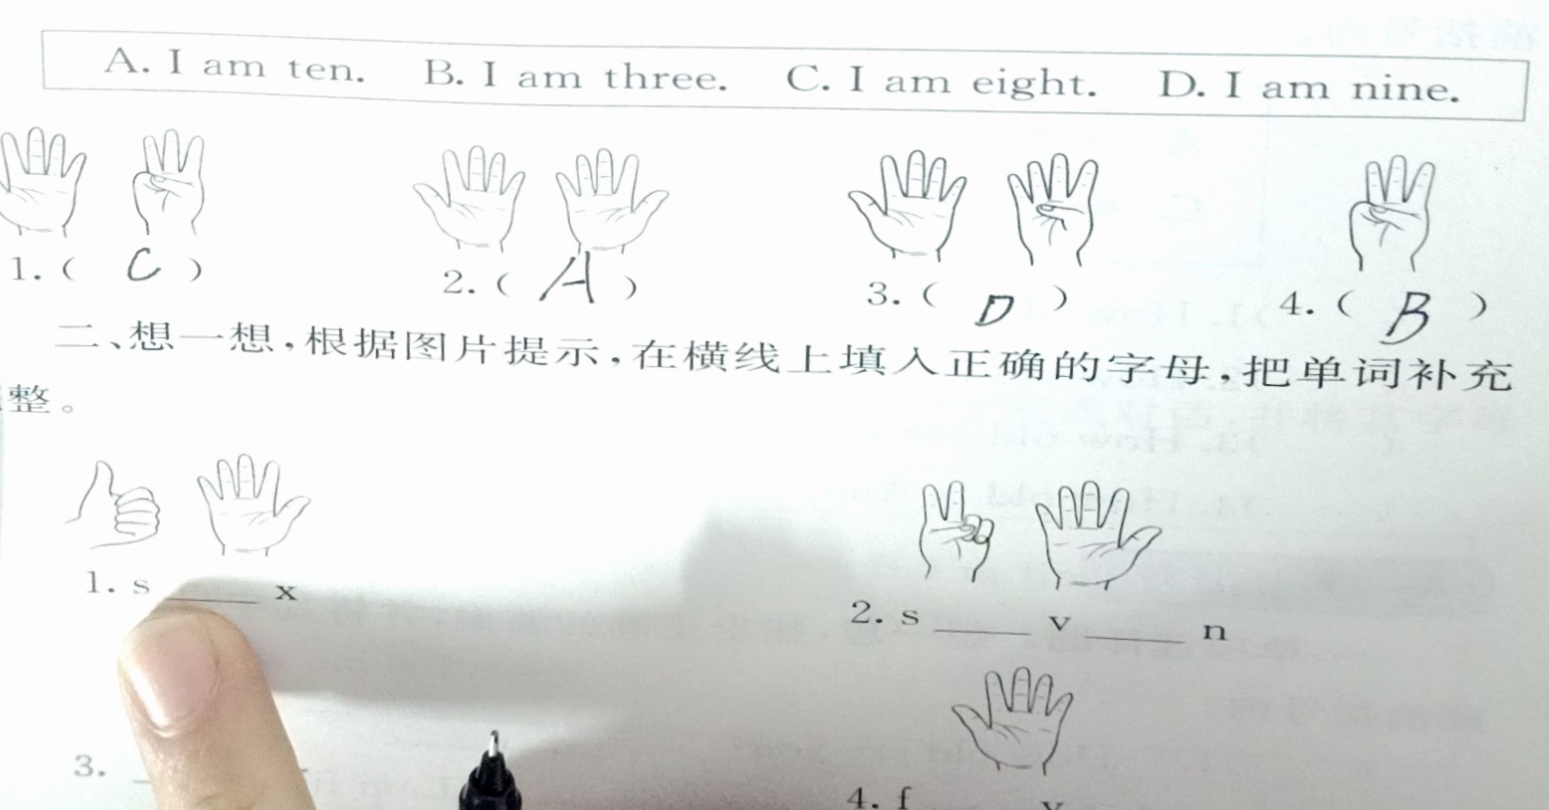 A. I am ten. B. I am three. C. I am eight. D. I am nine.
1. ( C ) 2. ( A ) 3. ( D ) 4. ( B )
二、想一想,根据图片提示,在横线上填入正确的字母,把单词补充
整。
1. s ____ x 2. s ____ v ____ n
3. 4. f v